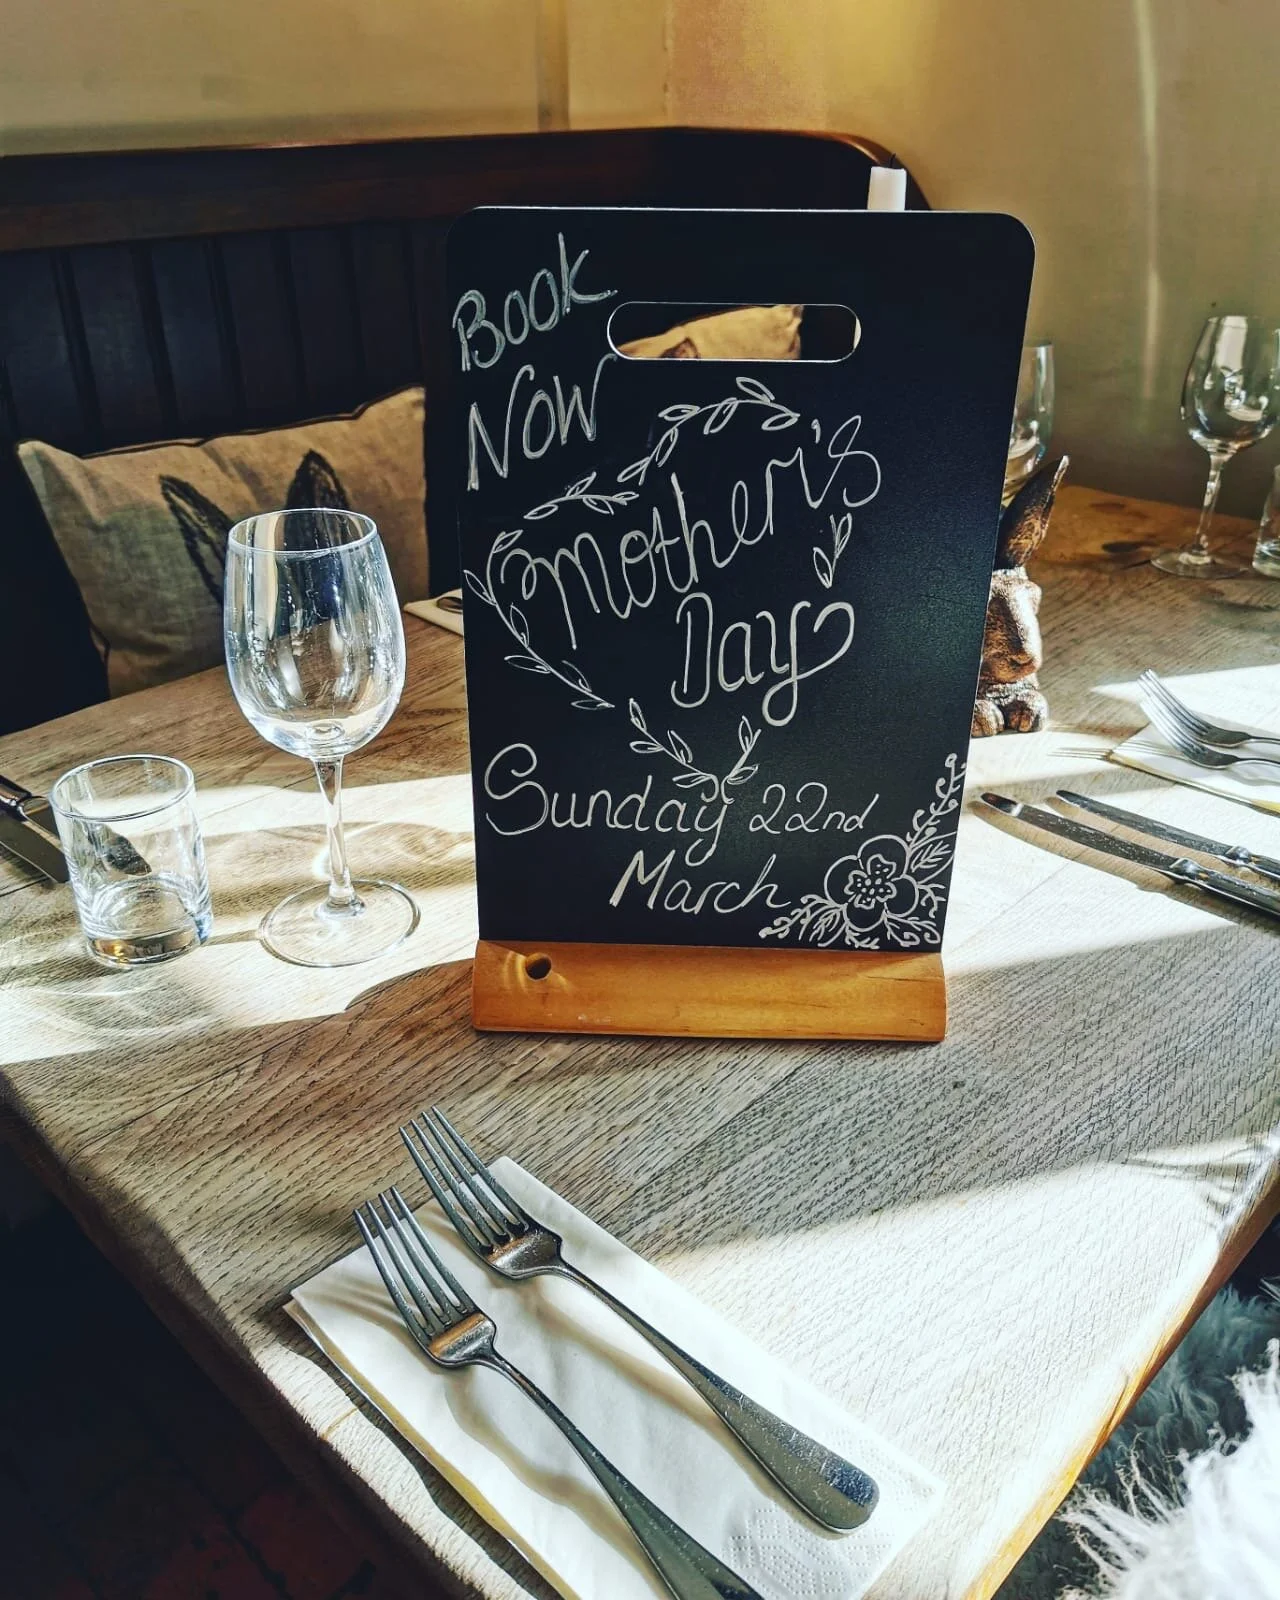 Book
Now
Mother's
Day
Sunday 22nd
March